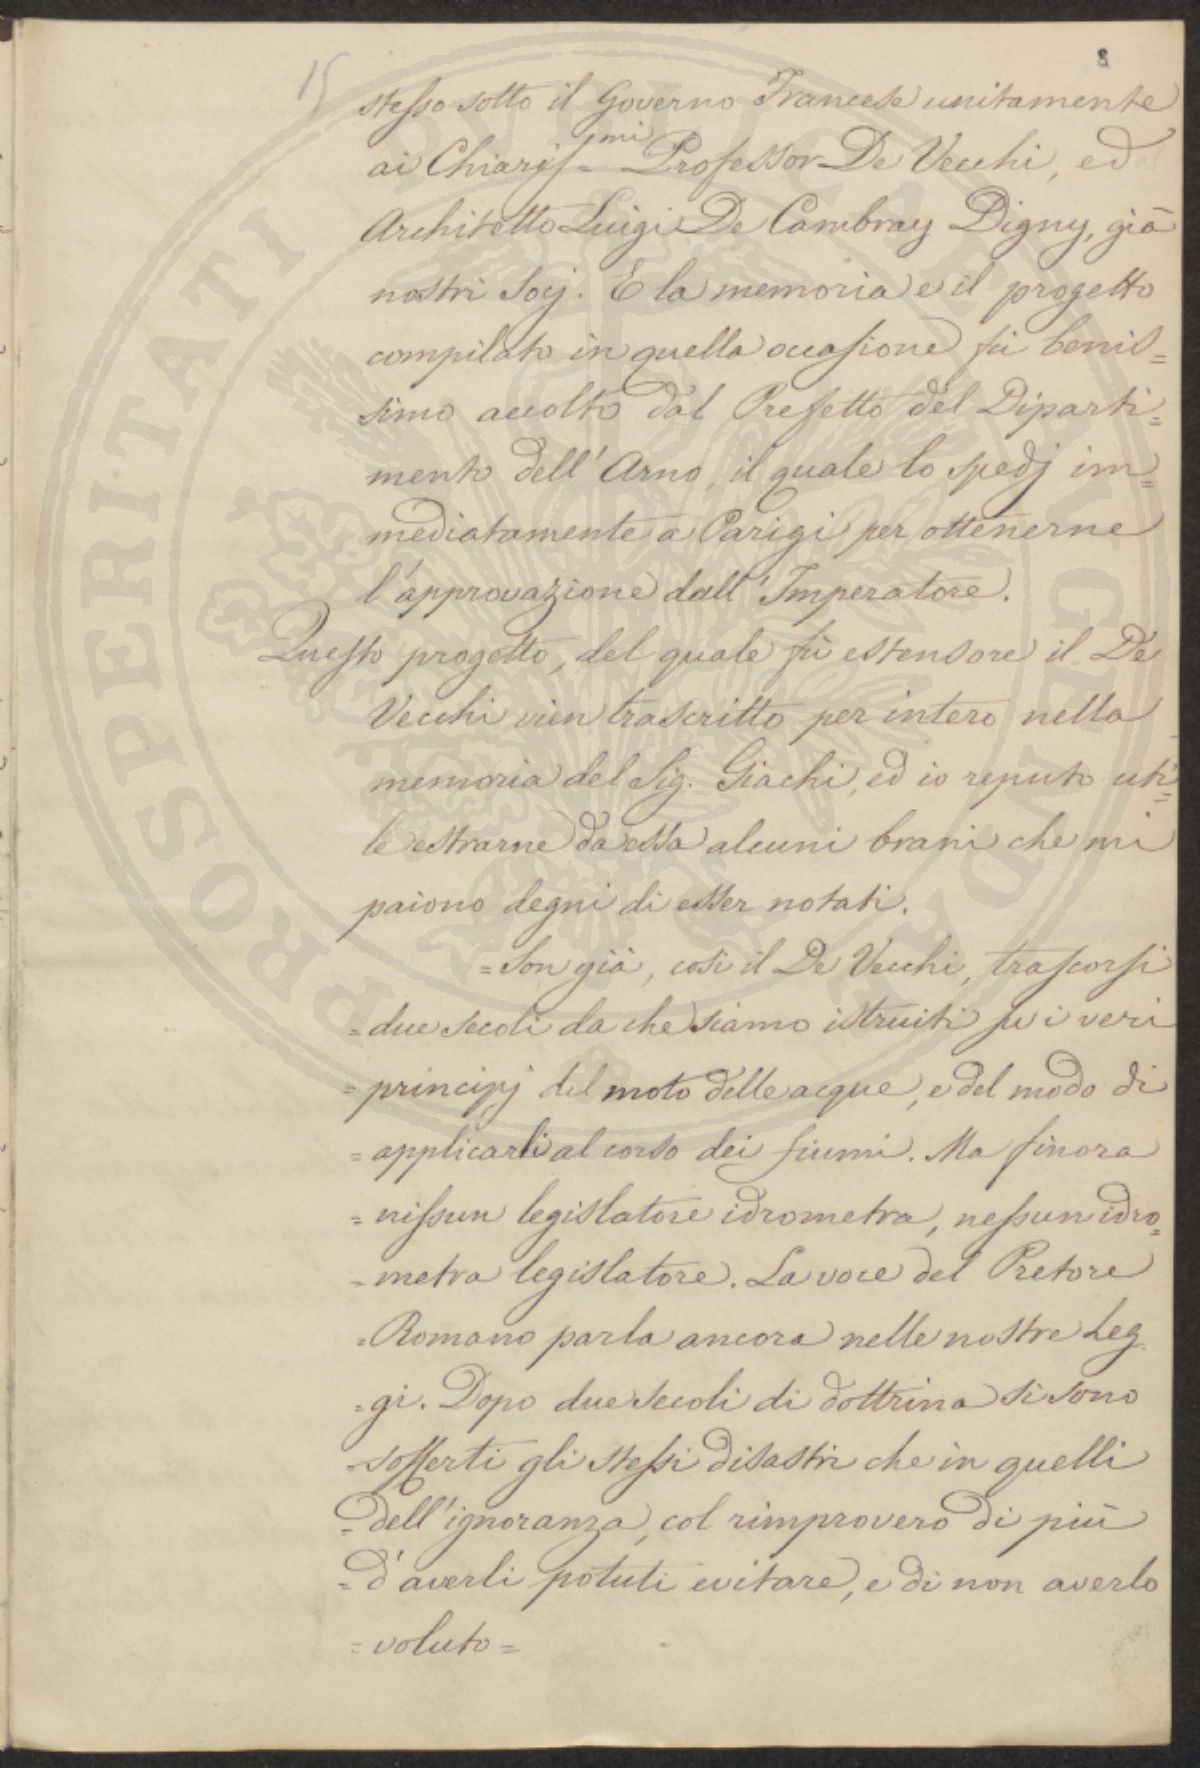 8
15
stesso sotto il Governo Francese unitamente
ai Chiariss.mi Professor De Vecchi, ed
Architetto Luigi De Cambray Digny, già
nostri Socj. E la memoria e il progetto
compilato in quella occasione fù benis=
simo accolto dal Prefetto del Diparti=
mento dell'Arno, il quale lo spedj im=
mediatamente a Parigi per ottenerne
l'approvazione dall'Imperatore.
Questo progetto, del quale fù estensore il De
Vecchi vien trascritto per intero nella
memoria del Sig. Giachi, ed io reputo uti=
le estrarne da essa alcuni brani che mi
paiono degni di esser notati.
=Son già, così il De Vecchi, trascorsi
=due secoli da che siamo istruiti su i veri
=principj del moto delle acque, e del modo di
=applicarli al corso dei fiumi. Ma finora
=nissun legislatore idrometra, nessun idro=
=metra legislatore. La voce del Pretore
=Romano parla ancora nelle nostre Leg
=gi. Dopo due secoli di dottrina si sono
=sofferti gli stessi disastri che in quelli
=dell'ignoranza, col rimprovero di più
=d'averli potuti evitare, e di non averlo
=voluto=
PROSPERITATI PVBLICAE AVGENDAE